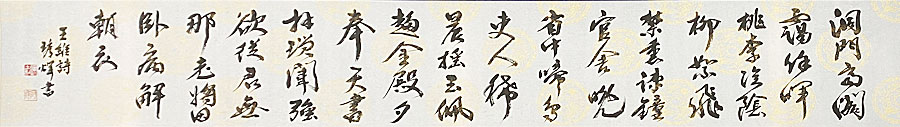 洞門高閣
靄餘暉
桃李陰陰
柳絮飛
禁裏疎鐘
官舍晚
省中啼鳥
吏人稀
晨搖玉佩
趨金殿夕
奉天書
拜瑣闈強
欲從君無
那老將因
臥病解
朝衣
王維詩
輝書